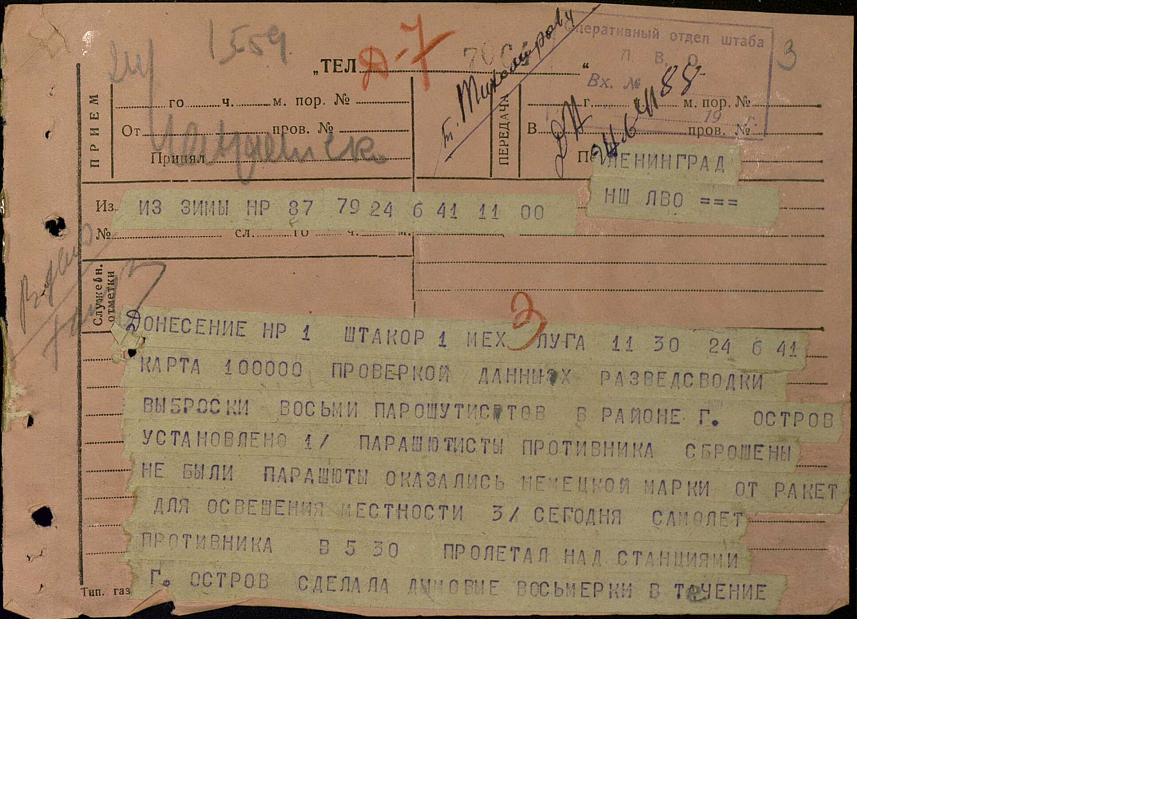 1559
„ТЕЛ
Д-7
"
Оперативный отдел штаба
Л В О
Вх. №
19 г.
3
ПРИЕМ
го ч. м. пор. №
От пров. №
Принял
т. Тихомирову
ПЕРЕДАЧА
г. м. пор. №
В пров. №
24.6.41
88
ЛЕНИНГРАД
НШ ЛВО ===
Из
ИЗ ЗИМЫ НР 87 79 24 6 41 11 00
№ сл. го ч. м.
Служебн.
отметки
ДОНЕСЕНИЕ НР 1 ШТАКОР 1 МЕХ ЛУГА 11 30 24 6 41
КАРТА 100000 ПРОВЕРКОЙ ДАННЫХ РАЗВЕДСВОДКИ
ВЫБРОСКИ ВОСЬМИ ПАРОШУТИСТОВ В РАЙОНЕ Г. ОСТРОВ
УСТАНОВЛЕНО 1/ ПАРАШЮТИСТЫ ПРОТИВНИКА СБРОШЕНЫ
НЕ БЫЛИ ПАРАШЮТЫ ОКАЗАЛИСЬ НЕМЕЦКОЙ МАРКИ ОТ РАКЕТ
ДЛЯ ОСВЕШЕНИЯ МЕСТНОСТИ 3/ СЕГОДНЯ САМОЛЕТ
ПРОТИВНИКА В 5 30 ПРОЛЕТАЯ НАД СТАНЦИЯМИ
Г. ОСТРОВ СДЕЛАЛА ДЫМОВЫЕ ВОСЬМЕРКИ В ТЕЧЕНИЕ
Тип. газ